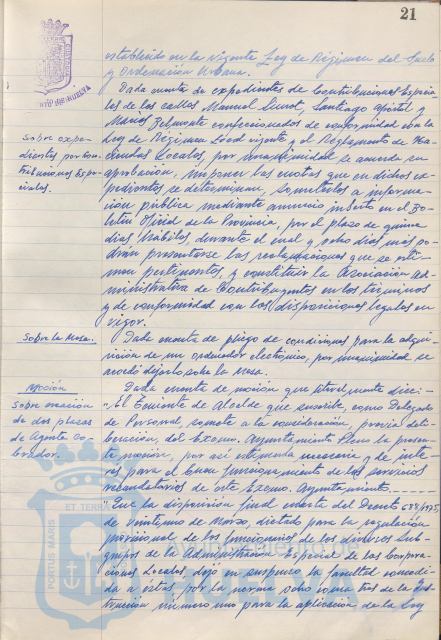 21
establecido en la vigente Ley de Régimen del Suelo
y Ordenación Urbana.
Dada cuenta de expedientes de Contribuciones Especia-
les de las calles Manuel Siurot, Santiago Apóstol y
Marios Belmonte confeccionados de conformidad con la
Ley de Régimen Local vigente y el Reglamento de Ha-
ciendas Locales, por unanimidad se acuerda su
aprobación, imponer las cuotas que en dichos ex-
pedientes se determinan, someterlos a informa-
ción pública mediante anuncio inserto en el Bo-
letín Oficial de la Provincia, por el plazo de quince
días hábiles, durante el cual y ocho días más po-
drán presentarse las reclamaciones que se esti-
men pertinentes, y constituir la Asociación Ad-
ministrativa de Contribuyentes en los términos
y de conformidad con las disposiciones legales en
vigor.
Sobre expe-
dientes por Con-
tribuciones Espe-
ciales.
Sobre la Mesa.
Dada cuenta de pliego de condiciones para la adqui-
sición de un ordenador electrónico, por unanimidad se
acordó dejarlo sobre la mesa.
Moción
Sobre creación
de dos plazas
de Agente Co-
brador.
Dada cuenta de moción que literalmente dice:
"El Teniente de Alcalde que suscribe, como Delegado
de Personal, somete a la consideración, previa deli-
beración, del Excmo. Ayuntamiento Pleno la presen-
te moción, por así estimarla necesaria y de inte-
rés para el buen funcionamiento de los servicios
recaudatorios de este Excmo. Ayuntamiento.
"Que la disposición final cuarta del Decreto 688/1975,
de veintiuno de Marzo, dictado para la regulación
provisional de los funcionarios de los diversos Sub-
grupos de la Administración Especial de las Corpora-
ciones Locales, dejó en suspenso la facultad concedi-
da a éstas por la norma ocho coma tres de la Ins-
trucción número uno para la aplicación de la Ley
PORTUS MARIS ET TERR
HUELVA